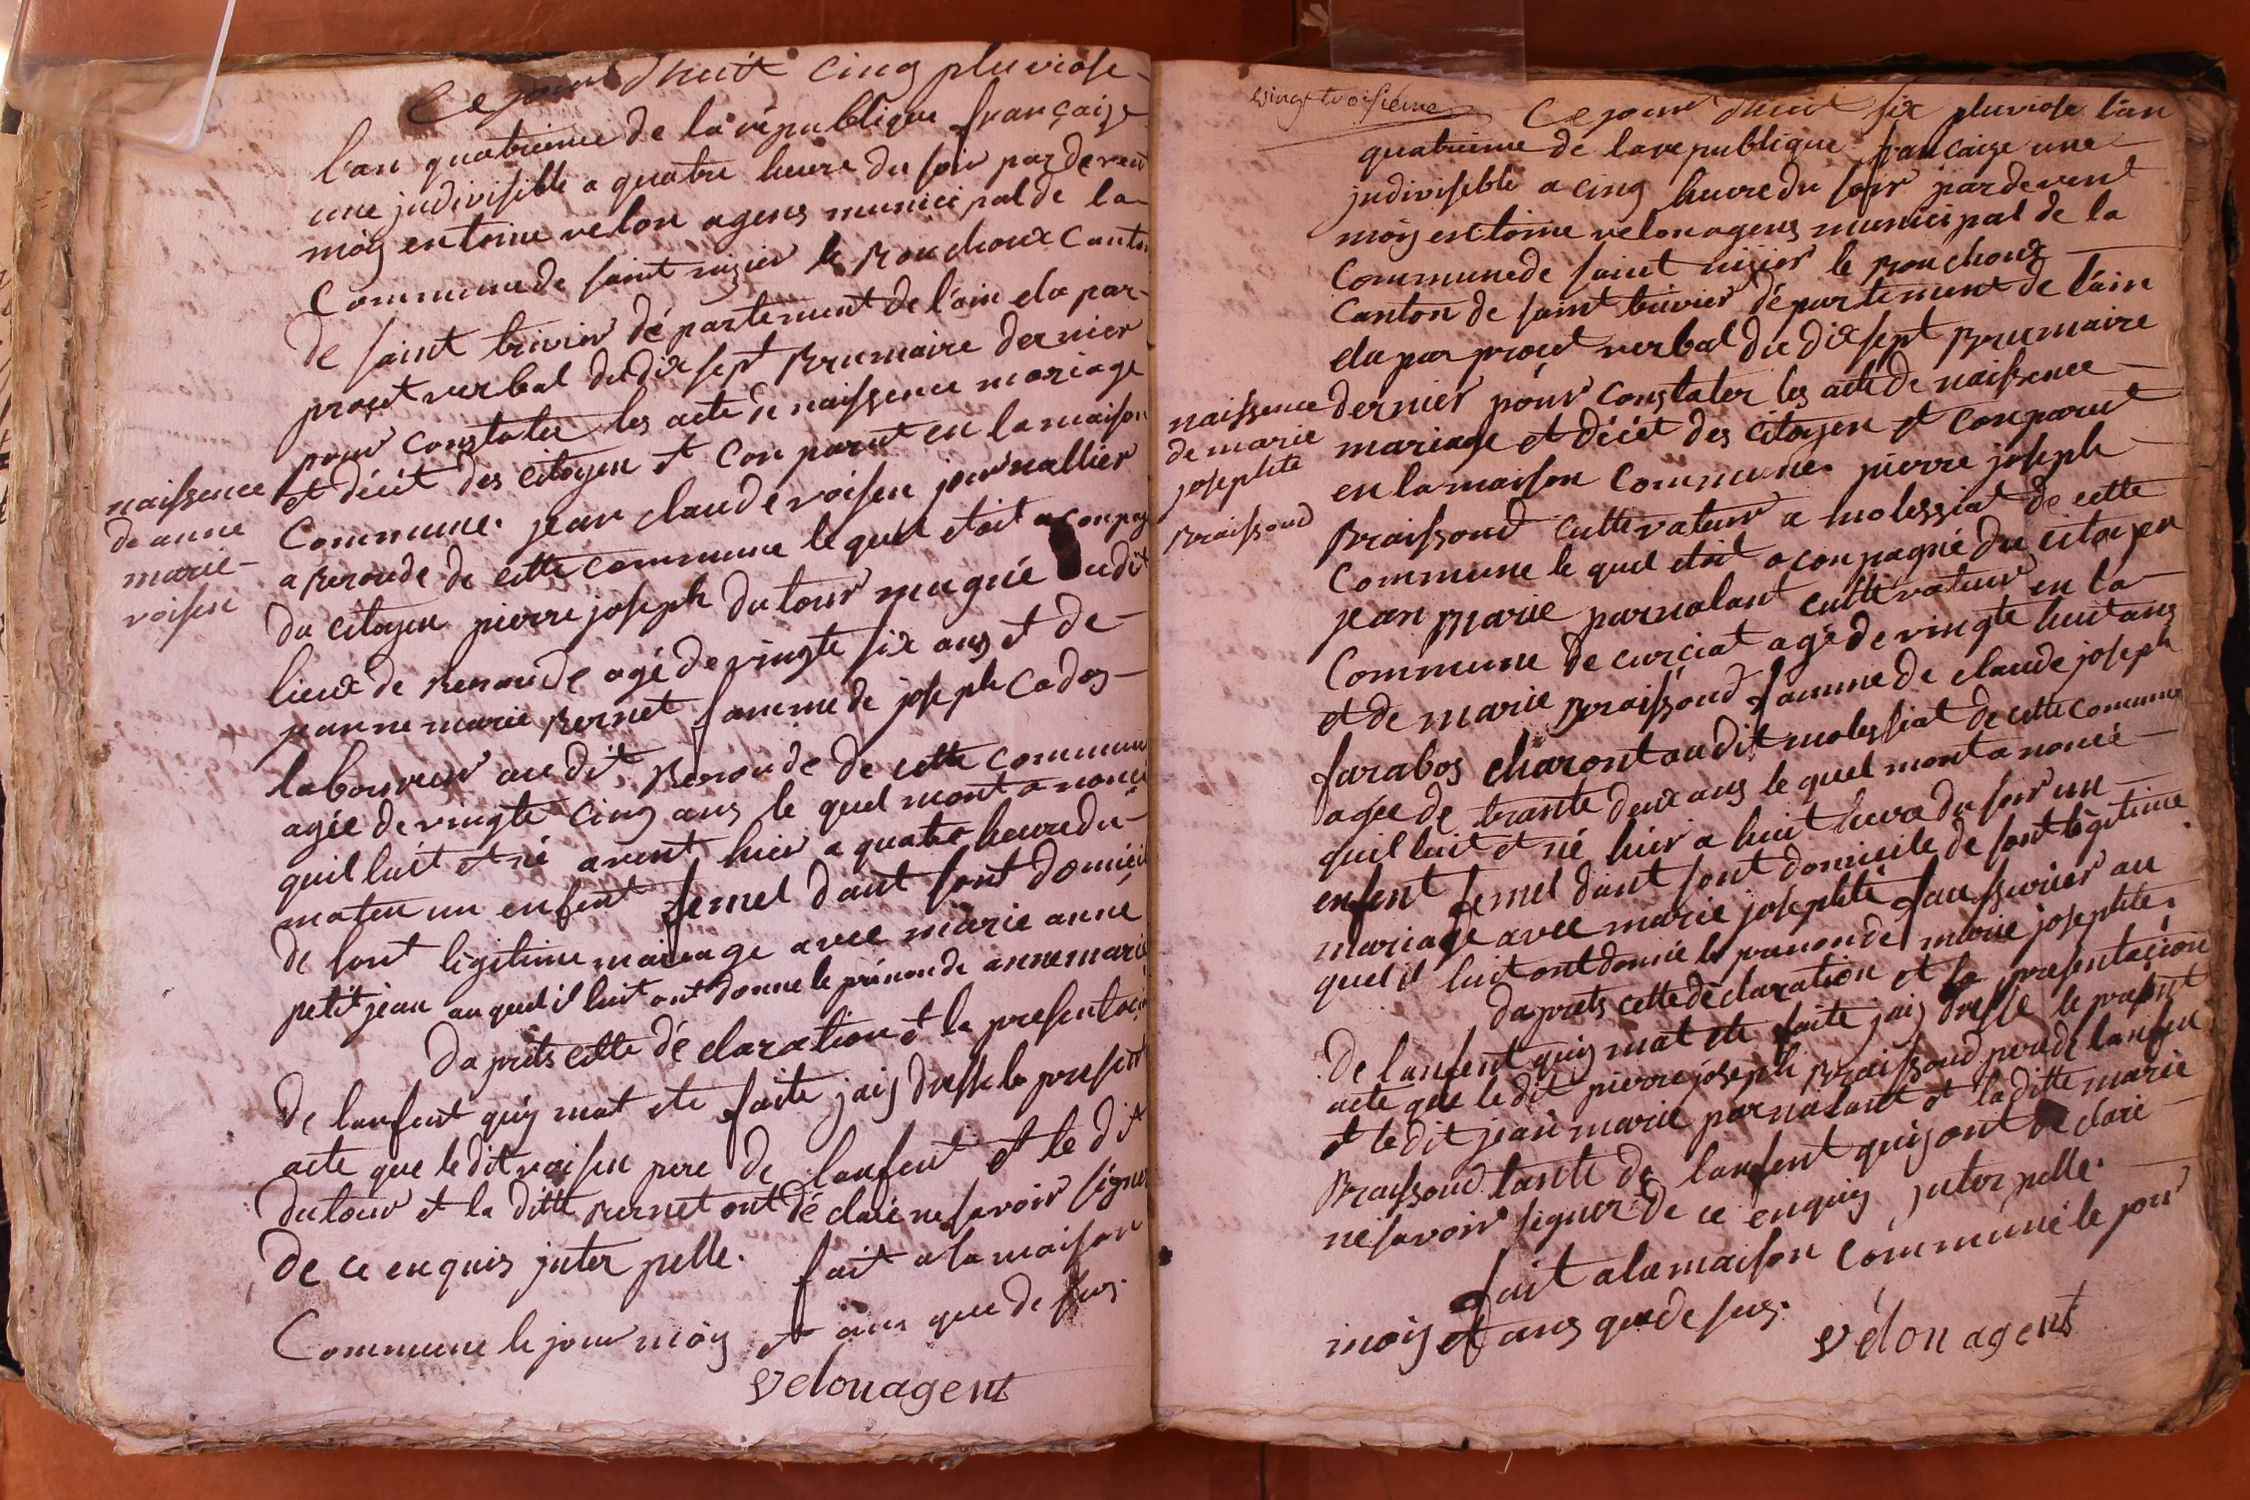 Ce jourd'huit cinq pluviose
l'an quatrieme de la republique françaize
une judivisible a quatre heure du soir par devent
moy entoine velon agens municipal de la
Commune de saint nizier le Bouchoux Canton
de saint trivier dé partement de l'ain elu par
proçet verbal du dix sept Brumaire dernier
pour constater les acte de naissence mariage
et décét des citoyen et Con parut en la maison
naissence
de anne
marie
voisen
Commune. jean claude voisen journallier
a Beroude de cette commune le quel etoit aconpag
du citoyen pierre joseph dutour mugnié audit
lieux de Beroude agé de vingte six ans et de
jeanne marie Bernet famme de joseph Cados
laboureur audit Beroude de cette commune
agée de vingte Cinq ans le quel mont a noncé
quil luit et né avent hier a quatre heure du
maten un enfent femel dant sont domicil
de sont légitime mariage avec marie anne
petit jean au quel il luit ont donné le prénon de anne marie
Da prets cette dé claration et la presentacion
de lanfent quiy mat ete faite jaiy dressé le present
acte que le dit voisen pere de lanfent et le dit
dutour et la ditte Bernet ont dé claré ne savoir signer
de ce enquis juter pelle. fait a la maison
Commune le jour moiy et ans que de sus.
velon agent
vingt troisieme
Ce jour dhuit six pluviose l'an
quatrieme de la republique francaize une
judivisible a cinq heure du soir par devent
moiy entoine velon agens municipal de la
Commune de saint nizier le Bouchoux
Canton de saint trivier département de l'ain
elu par proçet verbal du dix sept Brumaire
naissence
de marie
josephte
Braissoud
dernier pour constater les acte de naissence
mariage et décét des citoyen et conparut
en la maison Commune. pierre joseph
Braissoud cultivateur a molessiat de cette
Commune le quel etoit aconpagné du citoyen
jean Marie parnalant cultivateur en la
Commune de curciat agé de vingte huit ans
et de marie Braissoud famme de claude joseph
farabos charont audit molessiat de cette comune
agée de trante deux ans le quel mont a noncé
quil luit et né hier a huit heure du soir un
enfent femel dant sont domicile de sont légitime
mariage avec marie josephte fau ssurier au
quel il luit ont donné le prenon de marie josephte.
Da prets cette déclaration et la presentacion
de lanfent quiy mat ete faite jaiy dressé le present
acte que le dit pierre joseph Braissoud pere de lanfen
et le dit jean marie parnalant et la ditte marie
Braissoud tante de lanfent quiy ont declaré
ne savoir signer de ce enquiy juter pelle.
fait a la maison Commune le jour
moiy et ans que de sus.
vélon agent